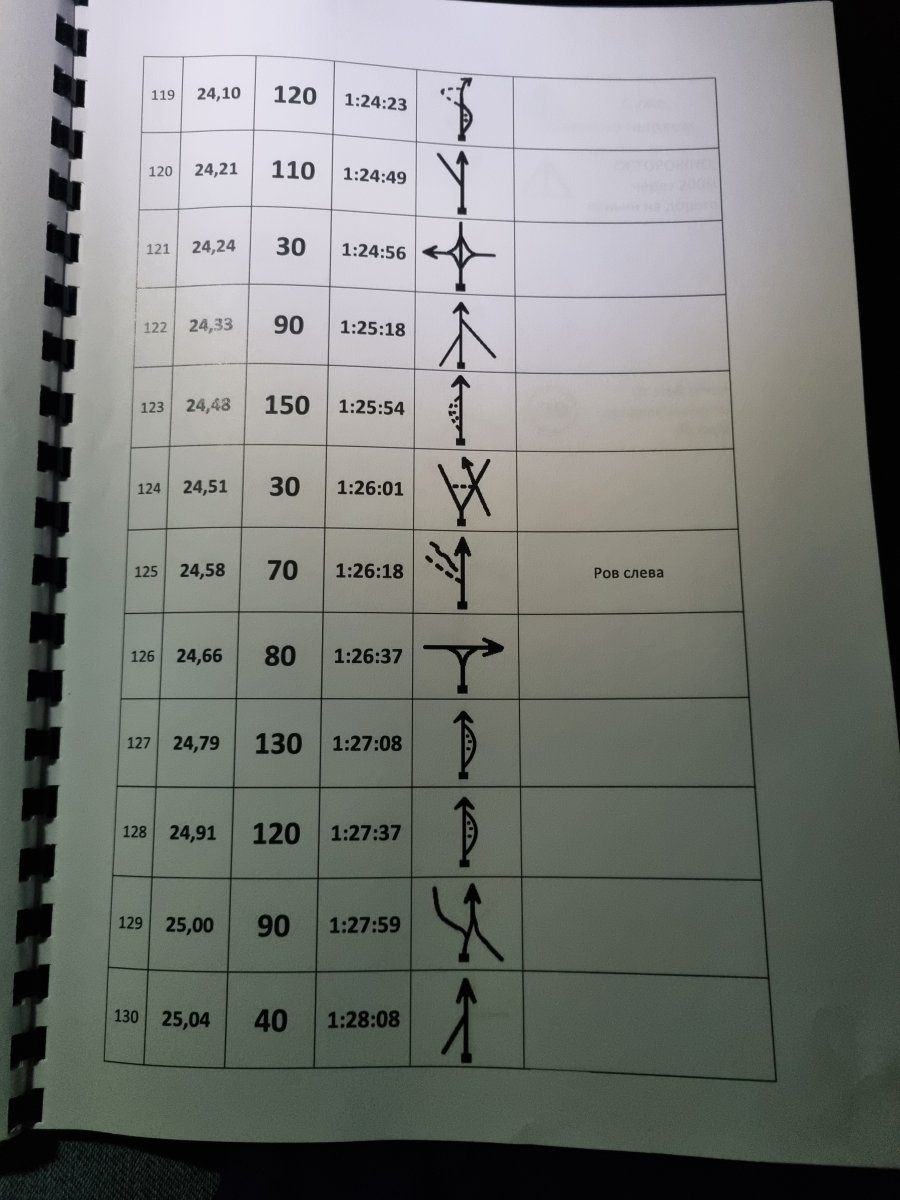 119 24,10 120 1:24:23
120 24,21 110 1:24:49
121 24,24 30 1:24:56
122 24,33 90 1:25:18
123 24,48 150 1:25:54
124 24,51 30 1:26:01
125 24,58 70 1:26:18 Ров слева
126 24,66 80 1:26:37
127 24,79 130 1:27:08
128 24,91 120 1:27:37
129 25,00 90 1:27:59
130 25,04 40 1:28:08